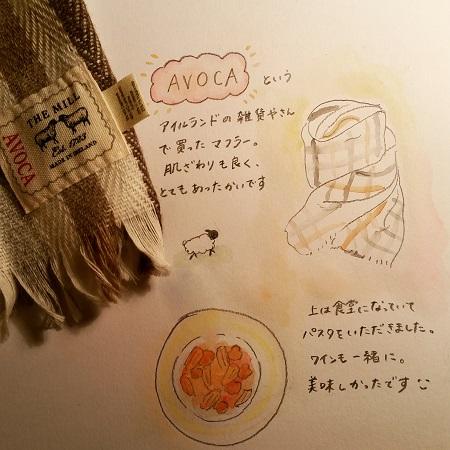 THE MILL
Est. 1723
MADE IN IRELAND
AVOCA
AVOCA という
アイルランドの雑貨やさん
で買ったマフラー。
肌ざわりも良く、
とてもあったかいです
上は食堂になっていて
パスタをいただきました。
ワインも一緒に。
美味しかったです